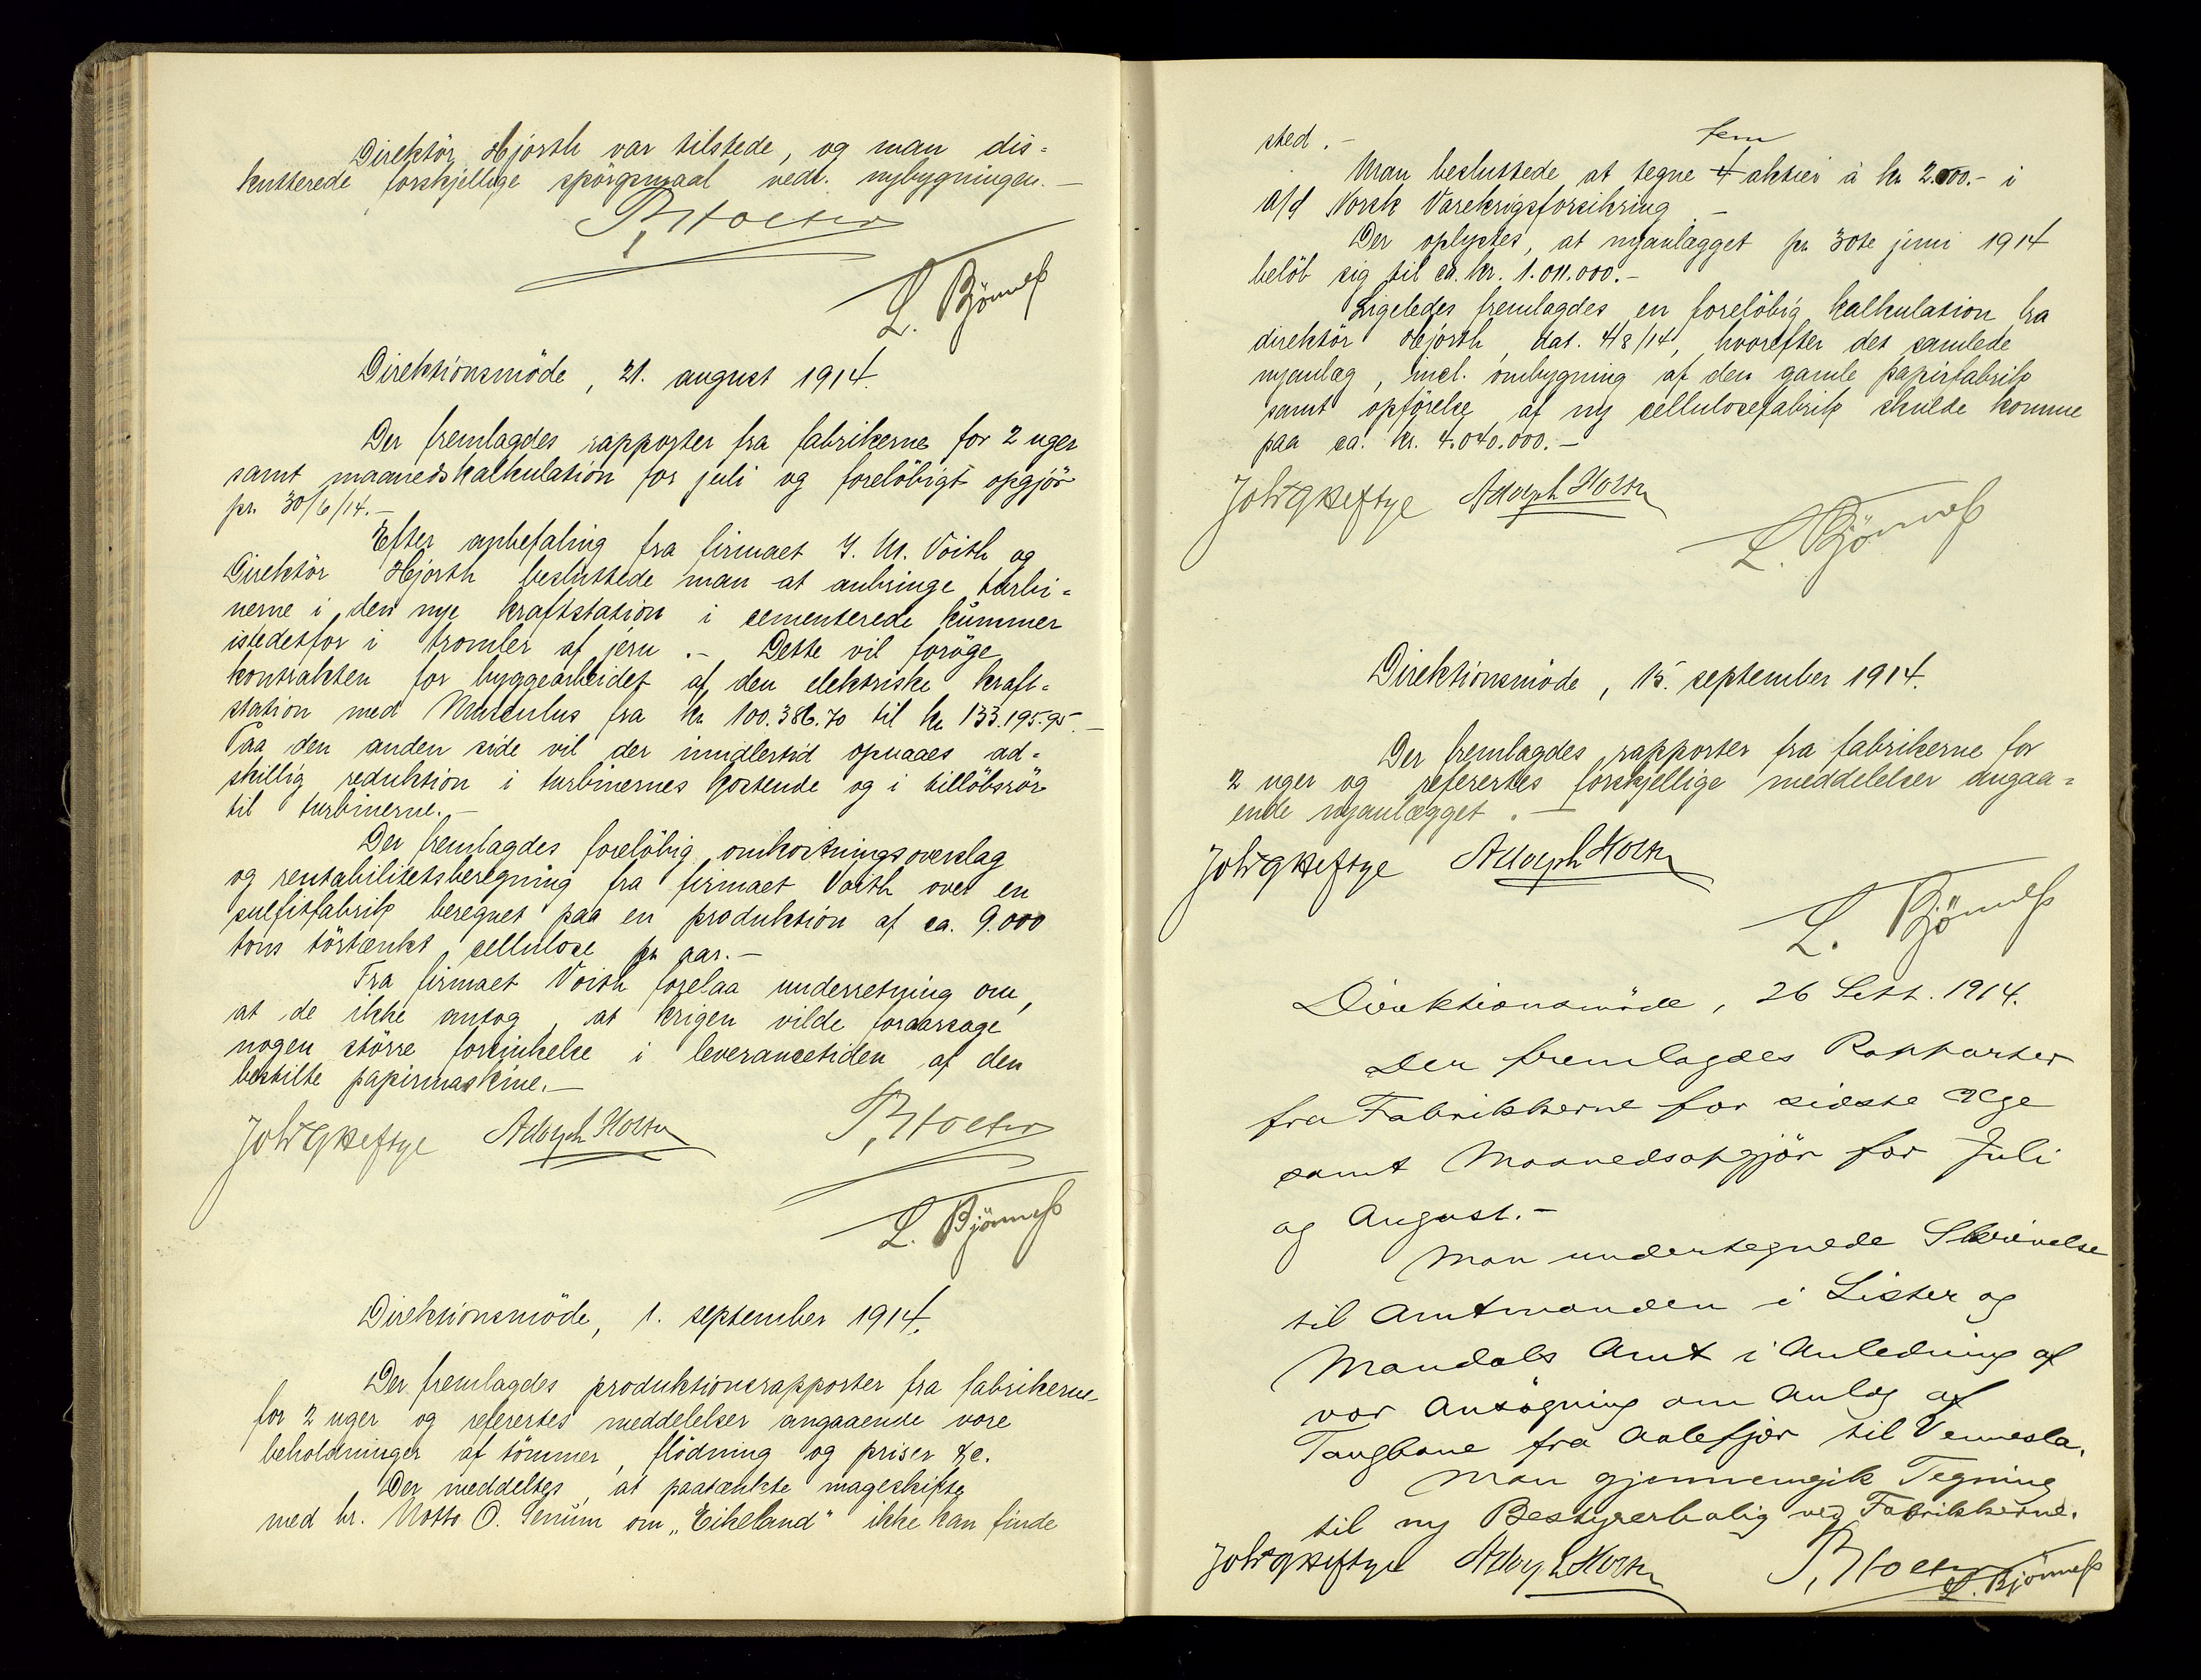 Direktör Hjorth var tilstede, og man dis=
kutterede forskjellige spörgsmaal vedr. nybygningen.—
P. Holter
L. Bjönness
Direktionsmöde, 21. august 1914.
Der fremlagdes rapporter fra fabrikerne for 2 uger
samt maanedskalkulation for juli og foreløbigt opgjör
pr. 30/6/14.—
Efter anbefaling fra firmaet J. M. Voith og
Direktör Hjorth besluttede man at anbringe turbi=
nerne i den nye kraftstation i cementerede kummer
istedetfor i tromler af jern.— Dette vil foröge
kontrakten for byggearbeidet af den elektriske kraft=
station med Musculus fra kr 100.386.70 til kr 133.195.95.—
Paa den anden side vil der imidlertid opnaaes ad=
skillig reduktion i turbinernes kostende og i tillöbsrör
til turbinerne.—
Der fremlagdes foreløbig omkostningsoverslag
og rentabilitetsberegning fra firmaet Voith over en
sulfitfabrik beregnet paa en produktion af ca. 9.000
tons törtænkt cellulose pr aar.—
Fra firmaet Voith forelaa underretning om,
at de ikke antog, at krigen vilde foraarsage
nogen större forsinkelse i leverancetiden af den
bestilte papirmaskine.—
Joh Heftye Adolph Holter P. Holter
L. Bjönness
Direktionsmöde, 1. september 1914.
Der fremlagdes produktionsrapporter fra fabrikerne
for 2 uger og refereretes meddelelser angaaende vore
beholdninger af tömmer, flödning og priser &c.
Der meddeltes, at paatænkte mageskifte
med hr. Notto O. Senum om „Eikeland" ikke kan finde
sted.—
fem
Man besluttede at tegne 4 aktier à kr 2.000.- i
A/S Norsk Varekrigsforsikring.—
Der oplystes, at nyanlægget pr 30te juni 1914
belöb sig til ca. kr. 1.011.000.—
Ligeledes fremlagdes en forelöbig kalkulation fra
direktör Hjorth, dat. 4/8/14, hvorefter det samlede
nyanlæg, incl. ombygning af den gamle papirfabrik
samt opförelse af ny cellulosefabrik skulde komme
paa ca. kr. 4.040.000.—
Joh Heftye Adolph Holter
L. Bjönness
Direktionsmöde, 15. september 1914.
Der fremlagdes rapporter fra fabrikerne for
2 uger og referertes forskjellige meddelelser angaa=
ende nyanlægget.—
Joh Heftye Adolph Holter
L. Bjönness
Direktionsmöde, 26 Sept. 1914.
Der fremlagdes Rapporter
fra Fabrikkerne for sidste Uge
samt Maanedsopgjör for Juli
og August.—
Man undertegnede Skrivelse
til Amtmanden i Lister og
Mandals Amt i Anledning af
vor Ansögning om Anlæg af
Taugbane fra Aalefjær til Vennesla.
Man gjennemgik Tegning
til ny Bestyrerbolig ved Fabrikkerne.
Joh Heftye Adolph Holter P. Holter
L. Bjönness